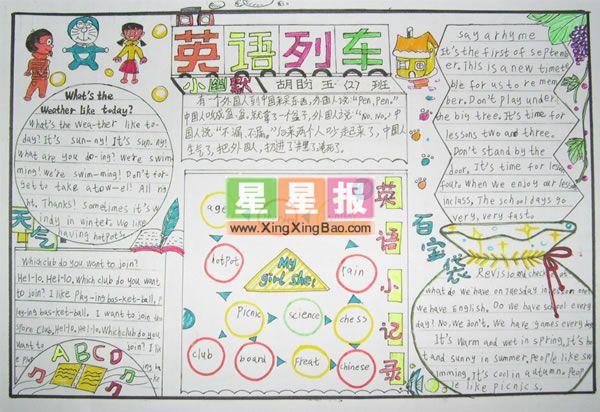 英语列车
小幽默
胡盼 五(2)班
有一个外国人到中国来买东西,外国人说"Pen, Pen."
中国人说
"No, No,"中
国人说"不漏,不漏。"后来两个人吵起来了,中国人
生气了,把外国人
What's the
Weather like today?
What's the weather like to-
day? It's sun-ny! It's sun-ny!
what are you do-ing? we're swim-
ming! we're swim-ming! Don't for-
get to take a tow-el! All rig-
ht, Thanks! Sometimes it's w
indy in winter. We like
having hotpot.
天气
Which club do you want to join?
Hel-lo, Hel-lo, Which club do you want
to join? I like Play-ing bas-ket-ball, p
lay-ing bas-ket-ball. I want to join the
Club. Hel-lo, Hel-lo. Which club do you
want to join? I
like
ABCD
星星报
www.XingXingBao.com
age
hotpot
rain
My
girl she!
picnic
science
chess
club
board
Great
chinese
英语小记录
say a rhyme
It's the first of septem
ber. This is a new time
table for us to re mem
ber. Don't play under
the big tree. It's time for
lessons two and three.
Don't stand by the
door. It's time for lesson
four. When we enjoy our lesson
in class, The school days go
very, very fast.
百宝袋
Revision and check
what do we have on Tuesdays
we have English. Do we have school every
day? No, We don't. We have games every day.
It's warm and wet in spring. It's hot
and sunny in summer. People like sw
imming. It's cool in autumn. Peop
le like picnics.